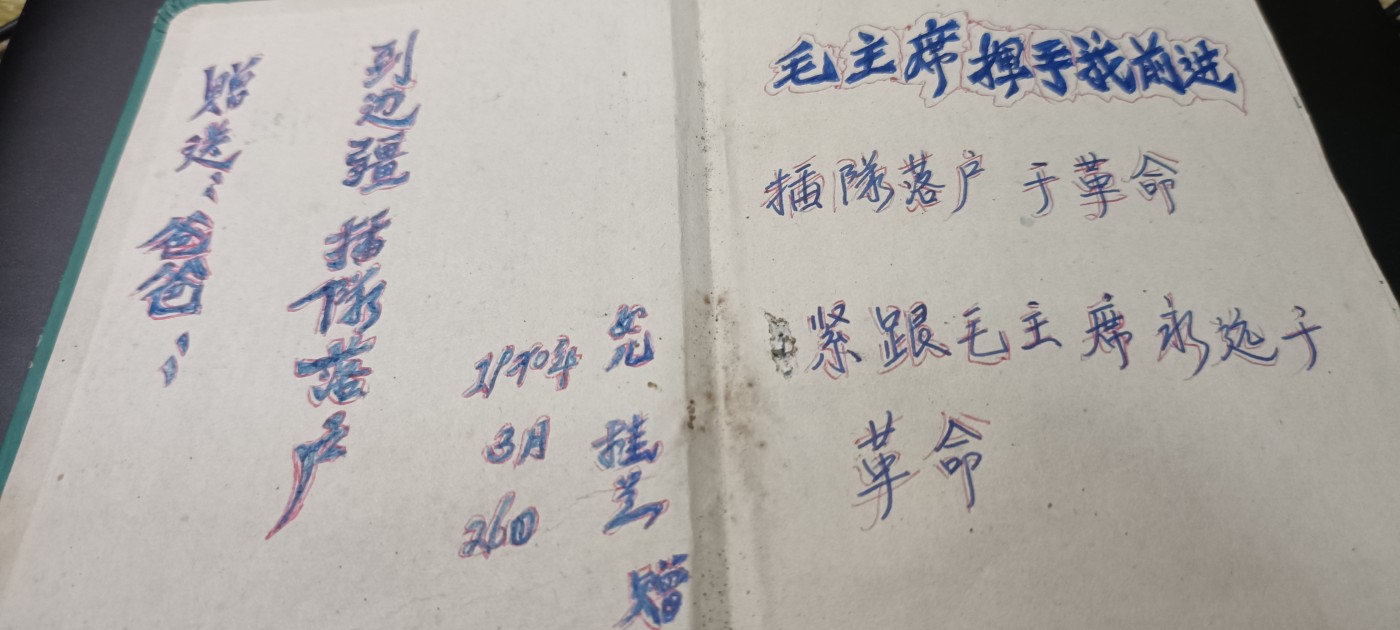 赠送：爸爸：
到边疆插隊落户
1970年
3月
26日
女兒 桂兰 赠
毛主席揮手我前进
插隊落户于革命
紧跟毛主席永远于
革命